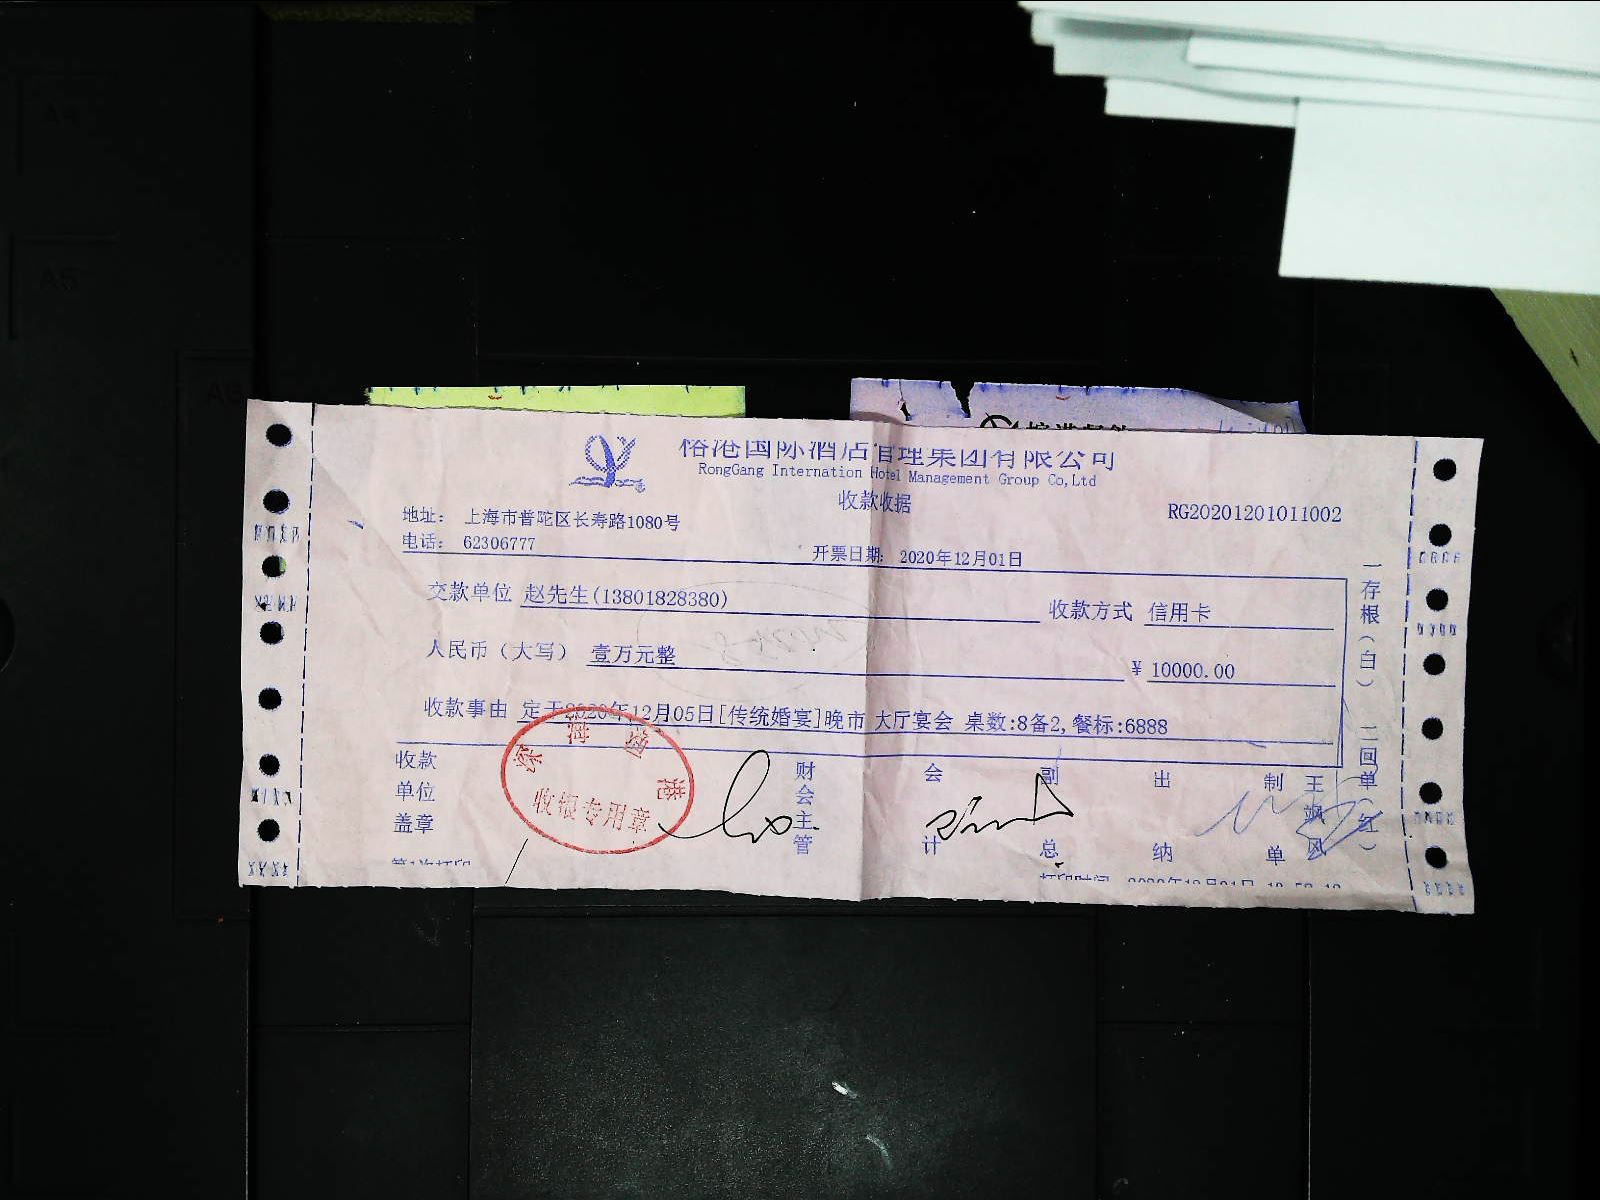 榕港国际酒店管理集团有限公司
RongGang Internation Hotel Management Group Co,Ltd
收款收据
RG20201201011002
地址： 上海市普陀区长寿路1080号
电话： 62306777
开票日期： 2020年12月01日
交款单位 赵先生(13801828380) 收款方式 信用卡
人民币（大写） 壹万元整 ¥ 10000.00
收款事由 定于2020年12月05日[传统婚宴]晚市 大厅宴会 桌数:8备2,餐标:6888
收款单位盖章
财会主管
会计
副总
出纳
制单
王飒风
一存根（白） 二回单（红）
收银专用章
第1次打印
打印时间
A5